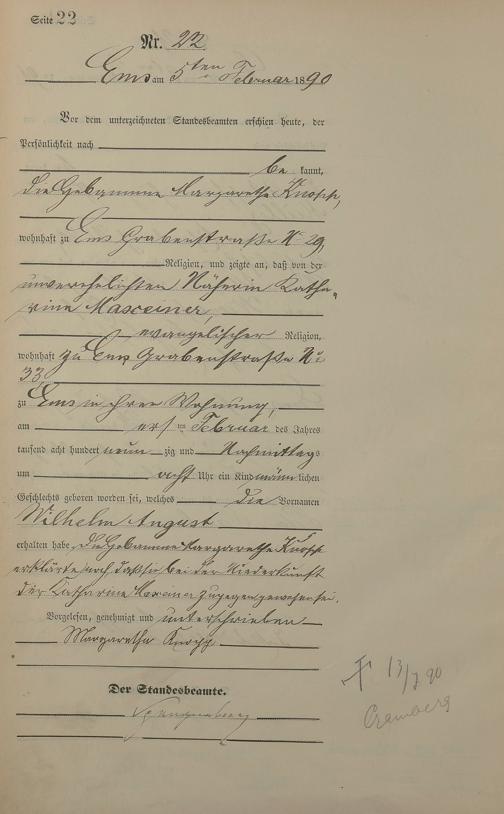 Seite 22
Nr. 22
Ems am 5ten Februar 1890
Vor dem unterzeichneten Standesbeamten erschien heute, der
Persönlichkeit nach
be kannt,
die Hebamme Margarethe Knopp,
wohnhaft zu Ems Grabenstraße No 29,
Religion, und zeigte an, daß von der
unverehelichten Näherin Katha-
rine
evangelischer Religion,
wohnhaft zu Ems Grabenstraße No
33
zu Ems in ihrer Wohnung,
am ersten Februar des Jahres
tausend acht hundert neun zig und Nachmittags
um acht Uhr ein Kind männlichen
Geschlechts geboren worden sei, welches die Vornamen
Wilhelm August
erhalten habe. Die Hebamme Margarethe Knopp
erklärte noch daß sie bei der Niederkunft
der Katharine zugegen gewesen sei.
Vorgelesen, genehmigt und unterschrieben
Margaretha Knopp
Der Standesbeamte.
Spangenberg
† 13/7 90
Cramberg